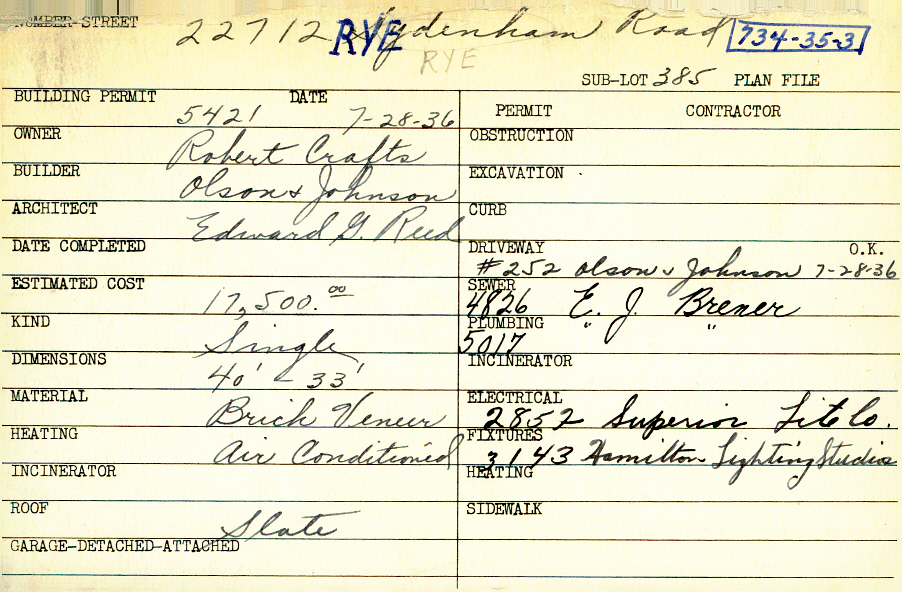 NUMBER-STREET 22712 Sydenham Road 734-35-31
RYE
RYE
SUB-LOT 385 PLAN FILE
BUILDING PERMIT 5421 DATE 7-28-36
OWNER Robert Crafts
BUILDER Olson & Johnson
ARCHITECT Edward G. Reed
DATE COMPLETED
ESTIMATED COST 17,500.00
KIND Single
DIMENSIONS 40' - 33'
MATERIAL Brick Veneer
HEATING Air Conditioned
INCINERATOR
ROOF Slate
GARAGE-DETACHED-ATTACHED
PERMIT CONTRACTOR
OBSTRUCTION
EXCAVATION
CURB
DRIVEWAY O.K.
#252 Olson & Johnson 7-28-36
SEWER
4826 E. J. Brener
PLUMBING " "
5017
INCINERATOR
ELECTRICAL
2852 Superior Lite Co.
FIXTURES
3143 Hamilton Lighting Studios
HEATING
SIDEWALK